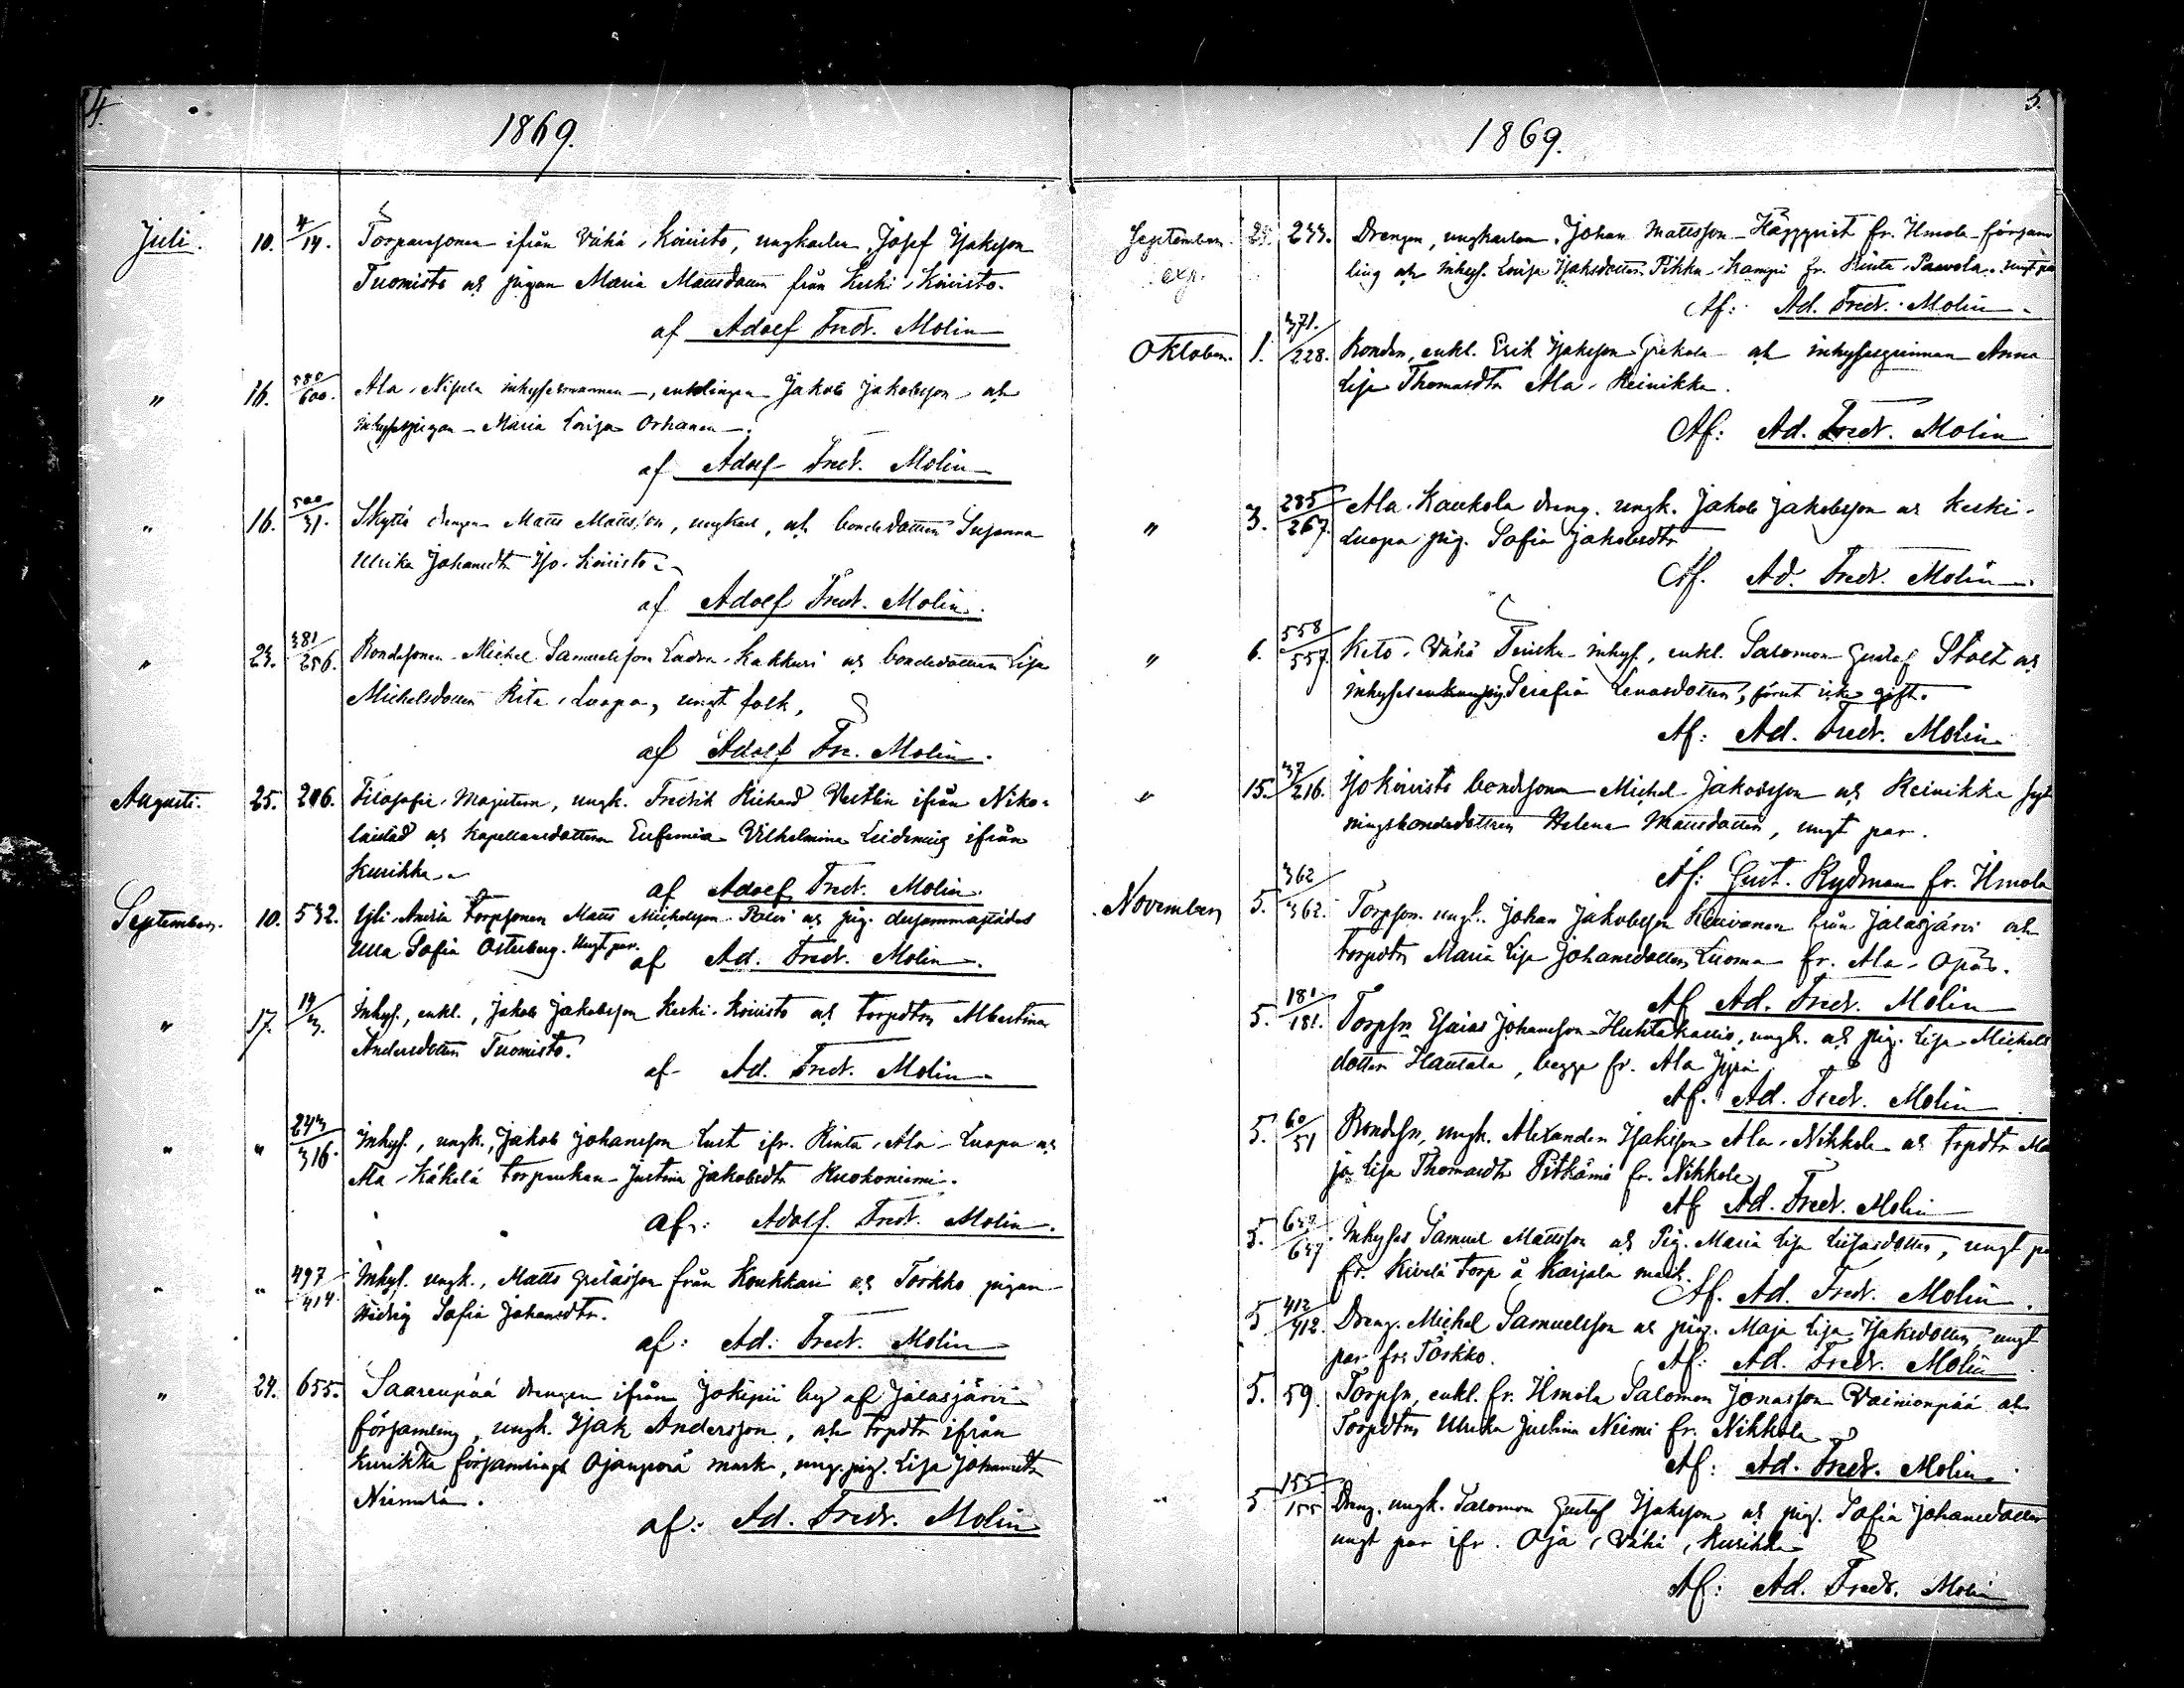 4.
1869.
Juli. 10. 4/14. Torparesonen ifrån Vähä-Koivisto, ungkarlen Josef Isaksson
Tuomisto och pigan Maria Mattsdotter från Keski-Koivisto.
af Adolf Fredr. Molin
" 16. 580/600. Ala-Nisula inhysesmannen, enklingen Jakob Jakobsson och
inhysespigan Maria Lovisa Orhanen.
af Adolf Fredr. Molin
" 16. 500/31. Skyttä drengen Matts Mattsson, ungkarl, och bondedottern Susanna
Ulrika Johansdtr Iso-Koivisto.
af Adolf Fredr. Molin.
" 23. 381/256. Bondesonen Michel Samuelsson Ladva-Kakkuri och bondedottern Lisa
Michelsdotter Rita-Luopa, ungt folk,
af Adolf Fr. Molin.
Augusti. 25. 206. Filosofie-Magistern, ungk. Fredrik Richard Vestlin ifrån Niko-
laistad och Kapellansdottern Eufemia Vilhelmina Leidenius ifrån
Kurikka.
af Adolf Fredr. Molin.
September. 10. 532. Yli-Anttila torpsonen Matts Michelsson och pig. dersammastädes
Ulla Sofia Österberg. Ungt par.
af Ad. Fredr. Molin.
" 17. 14/3. Inhys., enkl., Jakob Jakobsson Keski-Koivisto och torpdtrn Albertina
Andersdotter Tuomisto.
af Ad. Fredr. Molin
" " 243/316. Inhys., ungk., Jakob Johansson Lust ifr. Rinta-Ala-Luopa och
Ala-Käkelä torpenkan Justina Jakobsdtr Huokoniemi.
af: Adolf. Fredr. Molin.
" " 497/414. Inhys. ungk., Matts från Koukkari och Torkko pigan
Hedvig Sofia Johansdtr.
af: Ad. Fredr. Molin
" 24. 655. Saarenpää drengen ifrån Jokipii by af Jalasjärvi
församling, ungk. Isak Andersson, och torpdtr ifrån
Kurikka församlings Ojanperä mark, ung. pig. Lisa Johansdtr
Niemelä.
af: Ad. Fredr. Molin
5.
1869.
September. 233. Drengen, ungkarlen, Johan Mattsson Häggqvist fr. Ilmola församling
och inhys. Lovisa Isaksdotter Pikku-Kampi fr. Rinta-Paavola. ungt par
exp.
Af: Ad. Fredr. Molin
Oktober. 1. 371./228. Bonden, enkl. Erik Isaksson Grekola och inhysesqvinnan Anna
Lisa Thomasdtr Ala-Reinikka.
Af: Ad. Fredr. Molin
" 3. 285/267. Ala-Kaukola dreng. ungk. Jakob Jakobsson och Keski-
Luopa pig. Sofia Jakobsdtr
Af. Ad. Fredr. Molin
" 6. 558/557. Keto-Vähä inhys., enkl. Salomon Gustaf Stolt och
Serafia Lenasdotter, förut icke gift.
Af: Ad. Fredr. Molin
" 15. 37/216. Iso Koivisto bondesonen Michel Jakobsson och Reinikka
Helena Mattsdotter, ungt par.
Af: Gust. Rydman fr. Ilmola
November 5. 362/362. Torpson. ungk. Johan Jakobsson från Jalasjärvi och
torpdtr Maria Lisa Johansdotter Luoma fr. Ala-Opas.
Af Ad. Fredr. Molin
5. 181/181. Torpsn Esaias Johansson Huhtakallio, ungk. och pig. Lisa Michels
dotter Hautala, begge fr. Ala Jyrä
Af. Ad. Fredr. Molin
5. 60/51 Bondesn, ungk. Alexander Isaksson Ala-Nikkola och torpdtr Ma
ja Lisa Thomasdtr Pitkämö fr. Nikkola
Af Ad. Fredr. Molin
5. 647. Inhyses Samuel Mattsson och Pig. Maria Lisa, ungt
fr. Kivelä torp å Karjala mark.
Af. Ad. Fredr. Molin.
5 412/412. Dreng. Michel Samuelsson och pig. Maja Lisa Isaksdotter, ungt
par fr. Torkko.
Af: Ad. Fredr. Molin
5. 59. Torpsn, enkl. fr. Ilmola Salomon Jonasson Vainionpää och
Torpdtrn Ulrika Justina Niemi fr. Nikkola
Af: Ad. Fredr. Molin.
5 155/155 Dreng. ungk. Salomon Gustaf Isaksson och pig. Sofia Johansdotter
ungt par ifr. Oja-Vähä, Kurikka
Af: Ad. Fredr. Molin